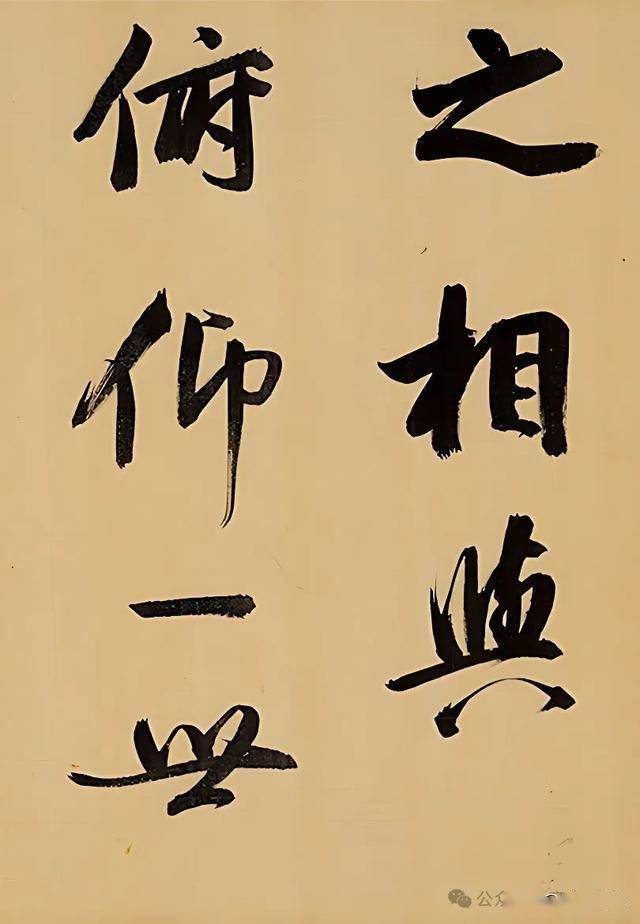 之相與
俯仰一世
公众